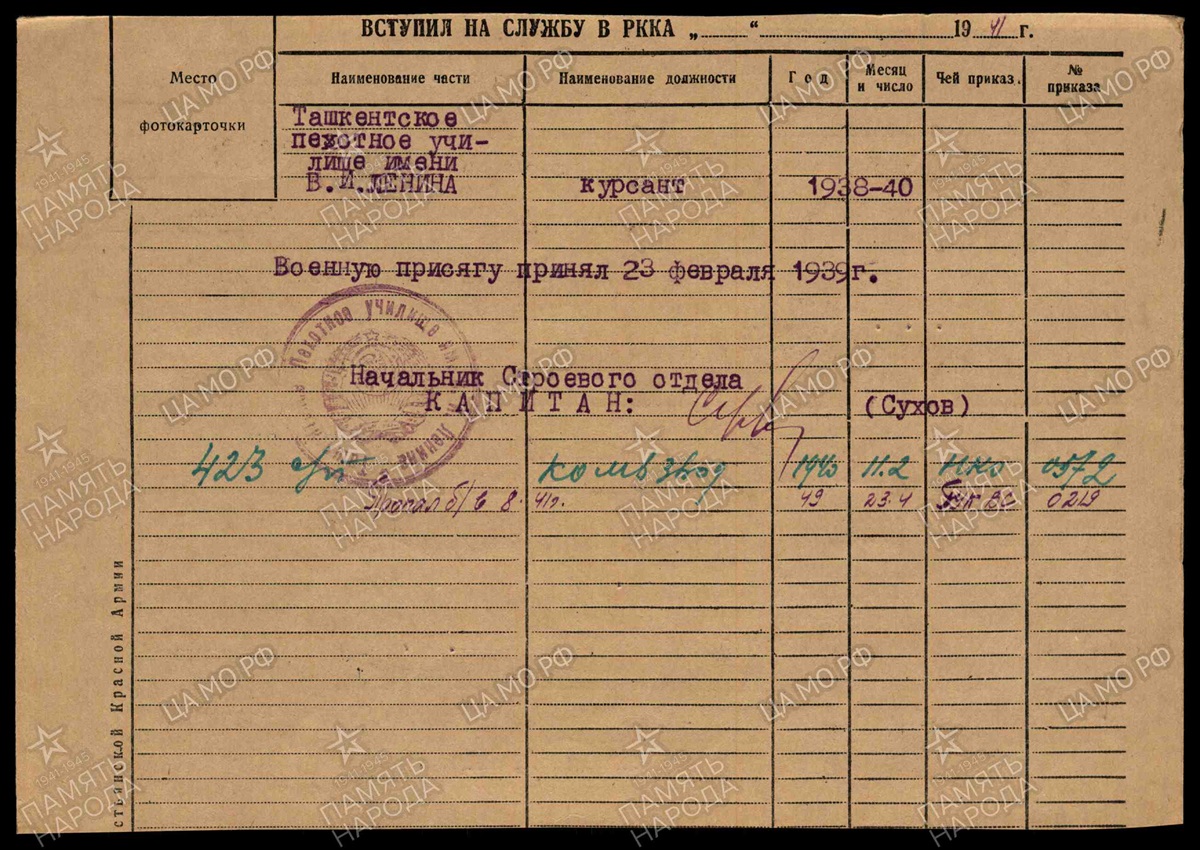 ВСТУПИЛ НА СЛУЖБУ В РККА „ “ 1941 г.
Место фотокарточки
Наименование части Наименование должности Год Месяц и число Чей приказ № приказа
Ташкентское
пехотное учи-
лище имени
В.И.ЛЕНИНА курсант 1938-40
Военную присягу принял 23 февраля 1939г.
Пехотное училище
Ленина
Начальник Строевого отдела
КАПИТАН: (Сухов)
423 комвзвод 1940 11.2 НКО 0572
Пропал б/в 8. 41г. 49 23.4 ГУК ВС 0219
стьянской Красной Армии
ЦАМО РФ
1941-1945
ПАМЯТЬ
НАРОДА